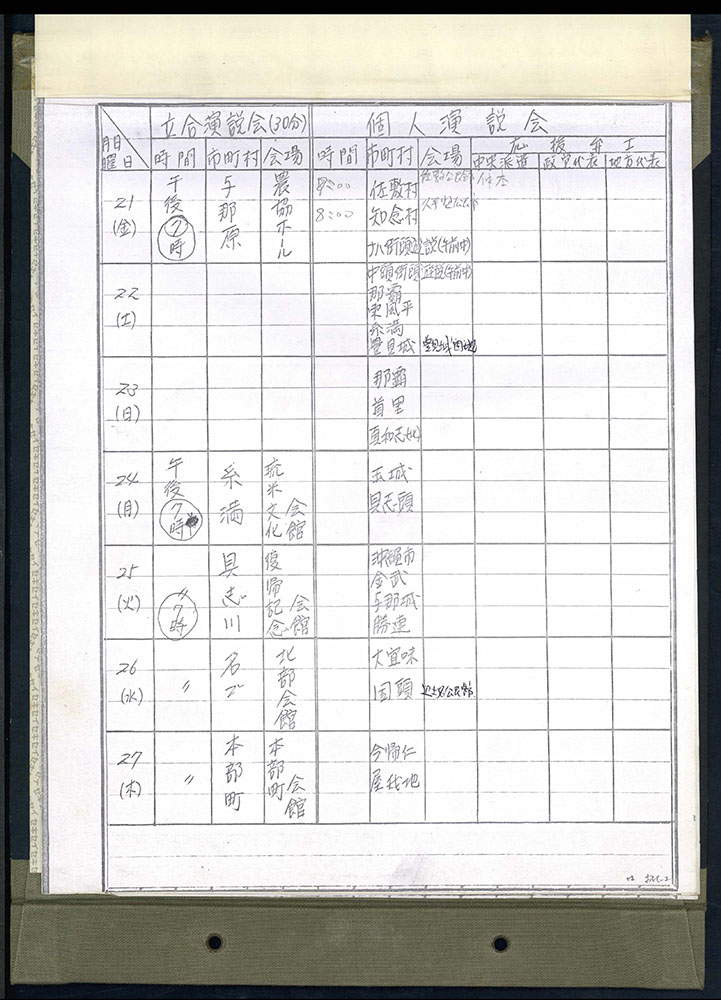 立合演説会(30分) 個人演説会
月日 曜日 時間 市町村 会場 時間 市町村 会場 応援弁士
中央派遣 政党代表 地方代表
21 (金) 午後7時 与那原 農協ホール 7:00 佐敷村 佐敷公民館
8:00 知念村
街頭遊説(午前中)
22 (土) 中頭街頭遊説(午前中)
那覇
東風平
糸満
豊見城 豊見城団地
23 (日) 那覇
首里
真和志
24 (月) 午後7時 糸満 琉米文化会館 玉城
具志頭
25 (火) 〃 7時 具志川 復帰記念会館 沖縄市
金武
与那城
勝連
26 (水) 〃 名ゴ 北部会館 大宜味
国頭 公民館
27 (木) 〃 本部町 本部町会館 今帰仁
屋我地